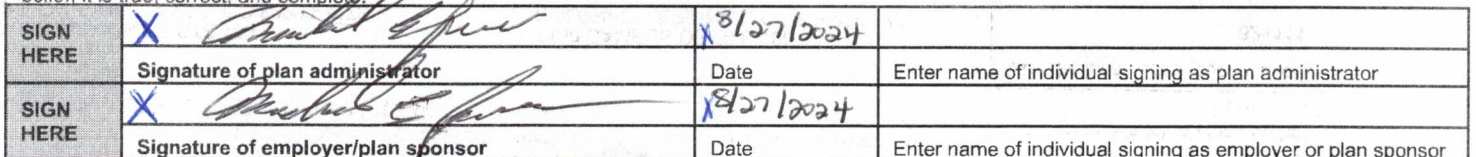 belief, it is true, correct, and complete.
SIGN HERE X 8/27/2024
Signature of plan administrator Date Enter name of individual signing as plan administrator
SIGN HERE X 8/27/2024
Signature of employer/plan sponsor Date Enter name of individual signing as employer or plan sponsor